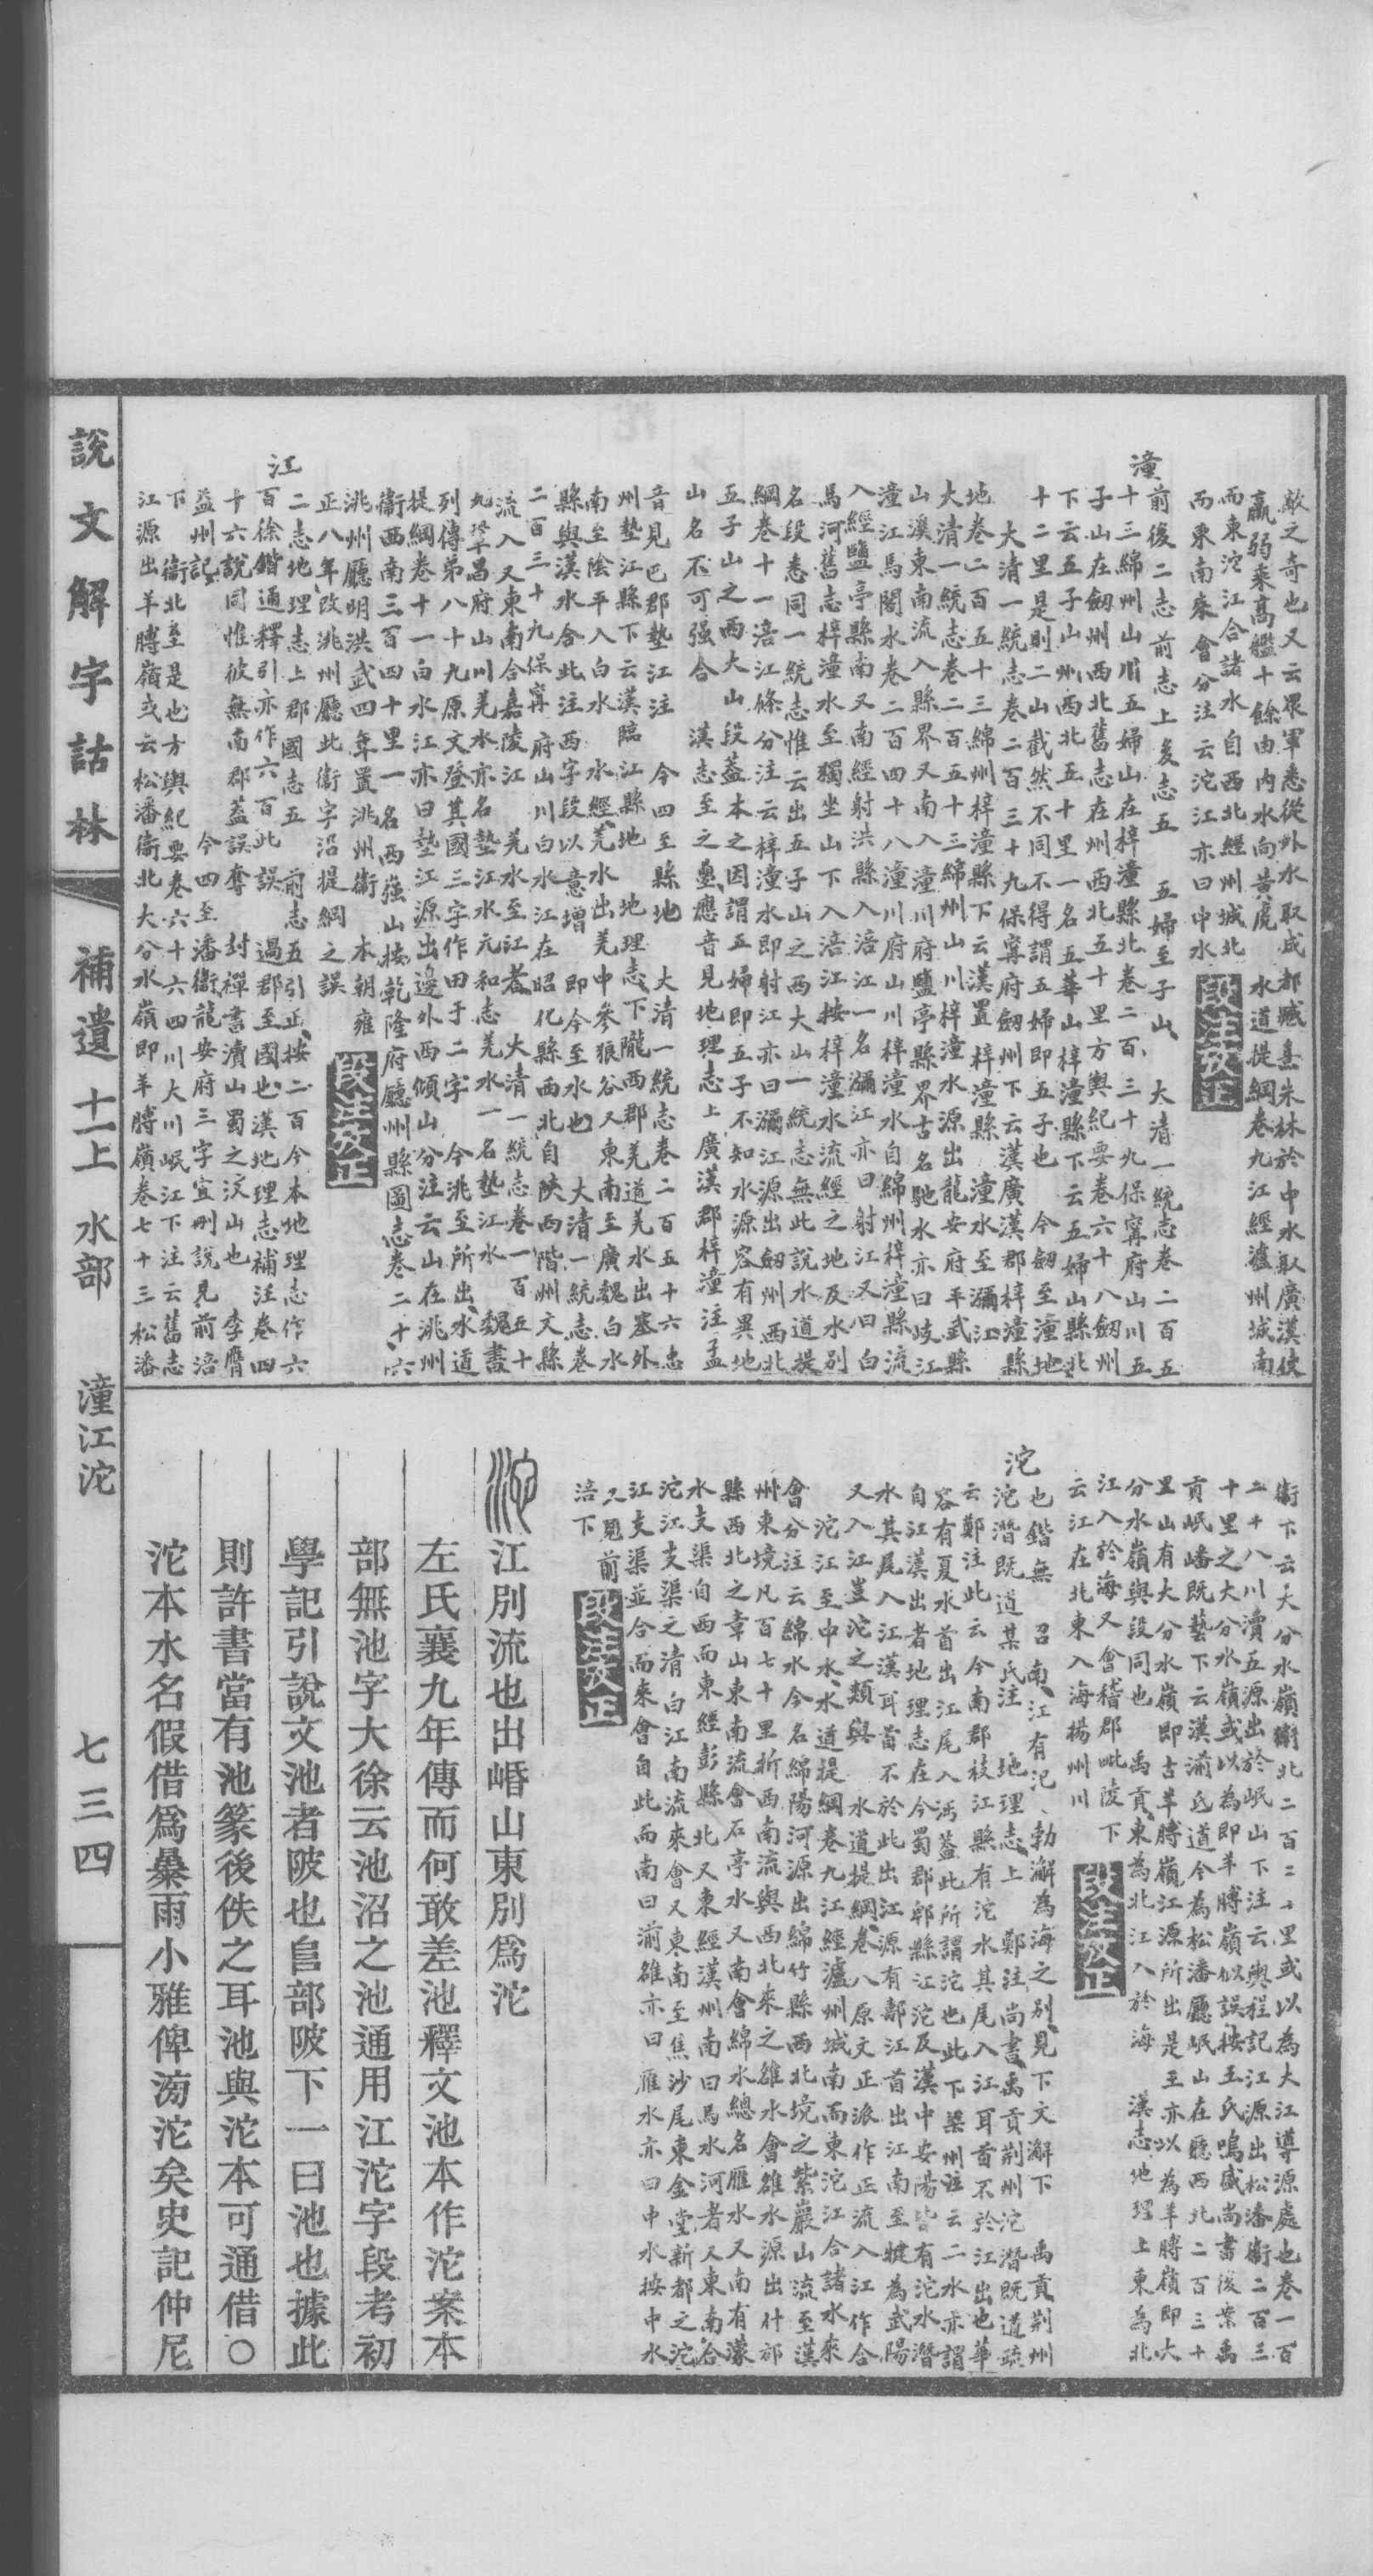 敵之奇也又云衆軍悉從外水取成都臧熹朱林於中水取廣漢使
羸弱乘高艦十餘由內水向黃虎　水道提綱卷九江經瀘州城南
而東沱江合諸水自西北經州城北
而東南來會分注云沱江亦曰中水　段注攷正
潼
前後二志前志上　志五　五婦至子山　大清一統志卷二百五
十三綿州山川五婦山在梓潼縣北卷二百三十九保寧府山川五
子山在劒州西北舊志在州西北五十里方輿紀要卷六十八劒州
下云五子山州西北五十里一名五華山梓潼縣下云五婦山縣北
十二里是則二山截然不同不得謂五婦即五子也　今劒至潼地
大清一統志卷二百三十九保寧府劒州下云漢廣漢郡梓潼縣
地卷二百五十三綿州梓潼縣下云漢置梓潼縣　潼水至瀰江
大清一統志卷二百五十三綿州山川梓潼水源出龍安府平武縣
山溪東南流入縣界又南入潼川府鹽亭縣界古名馳水亦曰岐江
潼江馬閣水卷二百四十八潼川府山川梓潼水自綿州梓潼縣流
入經鹽亭縣南又南經射洪縣入涪江一名瀰江亦曰射江又曰白
馬河舊志梓潼水至獨坐山下入涪江按梓潼水流經之地及水別
名段悉同一統志惟云出五子山之西大山一統志無此說水道提
綱卷十一涪江條分注云梓潼水即射江亦曰瀰江源出劒州西北
五子山之西大山段蓋本之因謂五婦即五子不知水源容有異地
山名不可强合　漢志至之壘應音見地理志上廣漢郡梓潼注孟
音見巴郡墊江注　今四至縣地　大清一統志卷二百五十六忠
州墊江縣下云漢臨江縣地　地理志下隴西郡羌道羌水出塞外
南至陰平入白水　水經羌水出羌中參狼谷又東南至廣魏白水
縣與漢水合此注西字段以意增　即今至水也　大清一統志卷
二百三十九保寧府山川白水江在昭化縣西北自陝西階州文縣
流入又東南合嘉陵江　羌水至江者　大清一統志卷一百五十
九鞏昌府山川羌水亦名墊江水元和志羌水一名墊江水　魏書
列傳弟八十九原文登其國三字作田于二字　今洮至所出　水道
提綱卷十一白水江亦曰墊江源出邊外西傾山分注云山在洮州
衞西南三百四十里一名西强山按乾隆府廳州縣圖志卷二十六
洮州廳明洪武四年置洮州衞　本朝雍
正八年改洮州廳此衞字沿提綱之誤　段注攷正
江
二志地理志上郡國志五　前志五引正　按二百今本地理志作六
百徐鍇通釋引亦作六百此誤　過郡至國也　漢地理志補注卷四
十六說同惟彼無南郡蓋誤奪　封禪書瀆山蜀之汶山也　李膺
益州記　今四至潘衞龍安府三字宜刪說見前涪
下　衞北至是也方輿紀要卷六十六四川大川岷江下注云舊志
江源出羊膊嶺或云松潘衞北大分水嶺即羊膊嶺卷七十三松潘
衞下云大分水嶺衞北二百二十里或以為大江導源處也卷一百
二十八川瀆五源出於岷山下注云輿程記江源出松潘衞二百三
十里之大分水嶺或以為即羊膊嶺似誤按王氏鳴盛尚書後案禹
貢岷嶓既藝下云漢湔氐道今為松潘廳岷山在廳西北二百三十
里山有大分水嶺即古羊膊嶺江源所出是王亦以為羊膊嶺即大
分水嶺與段同也　禹貢東為北江入於海　漢志地理上東為北
江入於海又會稽郡毗陵下
云江在北東入海揚州川　段注攷正
沱
也鍇無　召南江有汜　勃澥為海之別見下文澥下　禹貢荆州
沱潛既道某氏注　地理志上　鄭注尚書禹貢荆州沱潛既道疏
云鄭注此云今南郡枝江縣有沱水其尾入江耳首不於江出也華
容有夏水首出江尾入沔蓋此所謂沱也此下梁州注云二水亦謂
自江漢出者地理志在今蜀郡郫縣江沱及漢中安陽皆有沱水潛
水其尾入江漢耳首不於此出江源有鄩江首出江南至犍為武陽
又入江豈沱之類與　水道提綱卷八原文正派作正流入江作合
沱江至中水　水道提綱卷九江經瀘州城南而東沱江合諸水來
會分注云綿水今名綿陽河源出綿竹縣西北境之紫巖山流至漢
州東境凡百七十里折西南流與西北來之雒水會雒水源出什邡
縣西北之章山東南流會石亭水又南會綿水總名雁水又南有濛
水支渠自西而東經彭縣北又東經漢州南曰馬水河者又東南合
沱江支渠之清白江南流來會又東南至焦沙尾東金堂新都之沱
江支渠並合而來會自此而南曰湔雒亦曰雁水亦曰中水按中水
又見前
涪下　段注攷正
沱　江別流也出崏山東別爲沱
左氏襄九年傳而何敢差池釋文池本作沱案本
部無池字大徐云池沼之池通用江沱字段考初
學記引說文池者陂也𨸏部陂下一曰池也據此
則許書當有池篆後佚之耳池與沱本可通借○
沱本水名假借爲㬥雨小雅俾滂沱矣史記仲尼
說文解字詁林　補遺　十一上　水部　潼江沱　七三四